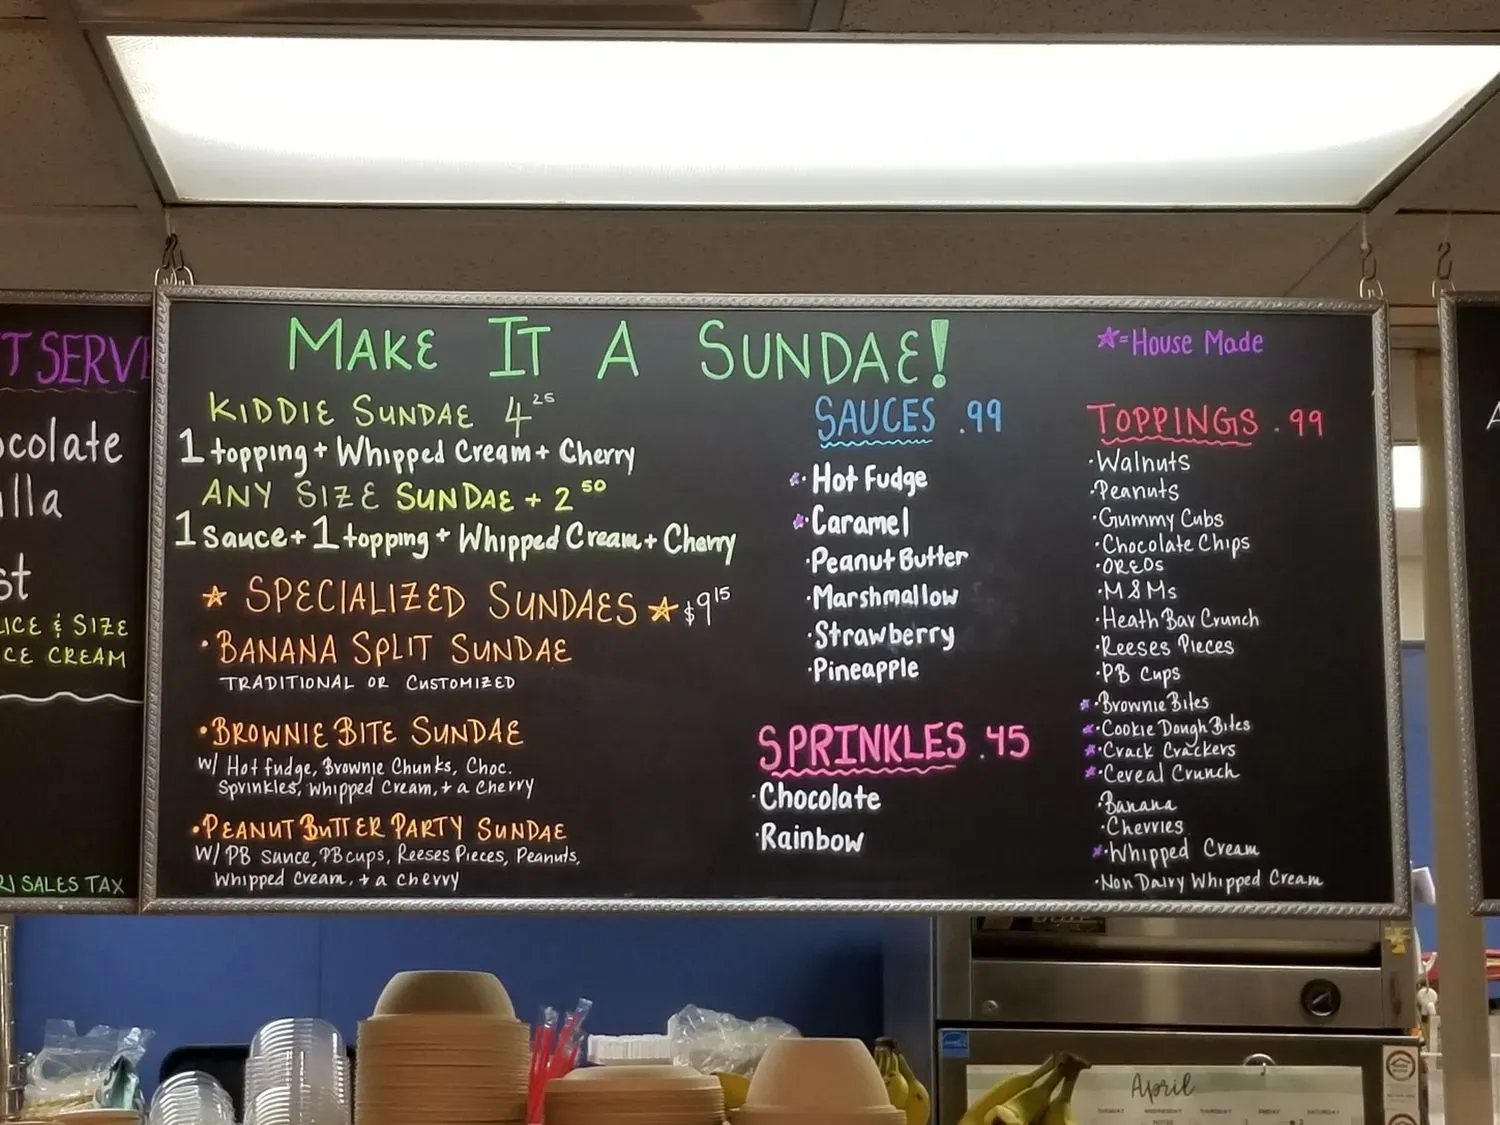 T SERVE
ocolate
illa
st
ICE & SIZE
CE CREAM
SALES TAX
MAKE IT A SUNDAE!
KIDDIE SUNDAE 4 25
1 topping + Whipped Cream + Cherry
ANY SIZE SUNDAE + 2 50
1 sauce + 1 topping + Whipped Cream + Cherry
★ SPECIALIZED SUNDAES ★ $9 15
• BANANA SPLIT SUNDAE
TRADITIONAL OR CUSTOMIZED
• BROWNIE BITE SUNDAE
W/ Hot fudge, Brownie Chunks, Choc.
Sprinkles, Whipped Cream, + a Cherry
• PEANUT BUTTER PARTY SUNDAE
W/ PB Sauce, PB cups, Reeses Pieces, Peanuts,
Whipped Cream, + a Cherry
SAUCES .99
★• Hot Fudge
★• Caramel
• Peanut Butter
• Marshmallow
• Strawberry
• Pineapple
SPRINKLES .45
• Chocolate
• Rainbow
★ = House Made
TOPPINGS .99
• Walnuts
• Peanuts
• Gummy Cubs
• Chocolate Chips
• OREOs
• M&Ms
• Heath Bar Crunch
• Reeses Pieces
• PB Cups
★• Brownie Bites
★• Cookie Dough Bites
★• Crack Crackers
★• Cereal Crunch
• Banana
• Cherries
★• Whipped Cream
• Non Dairy Whipped Cream
April
TUESDAY WEDNESDAY THURSDAY FRIDAY SATURDAY